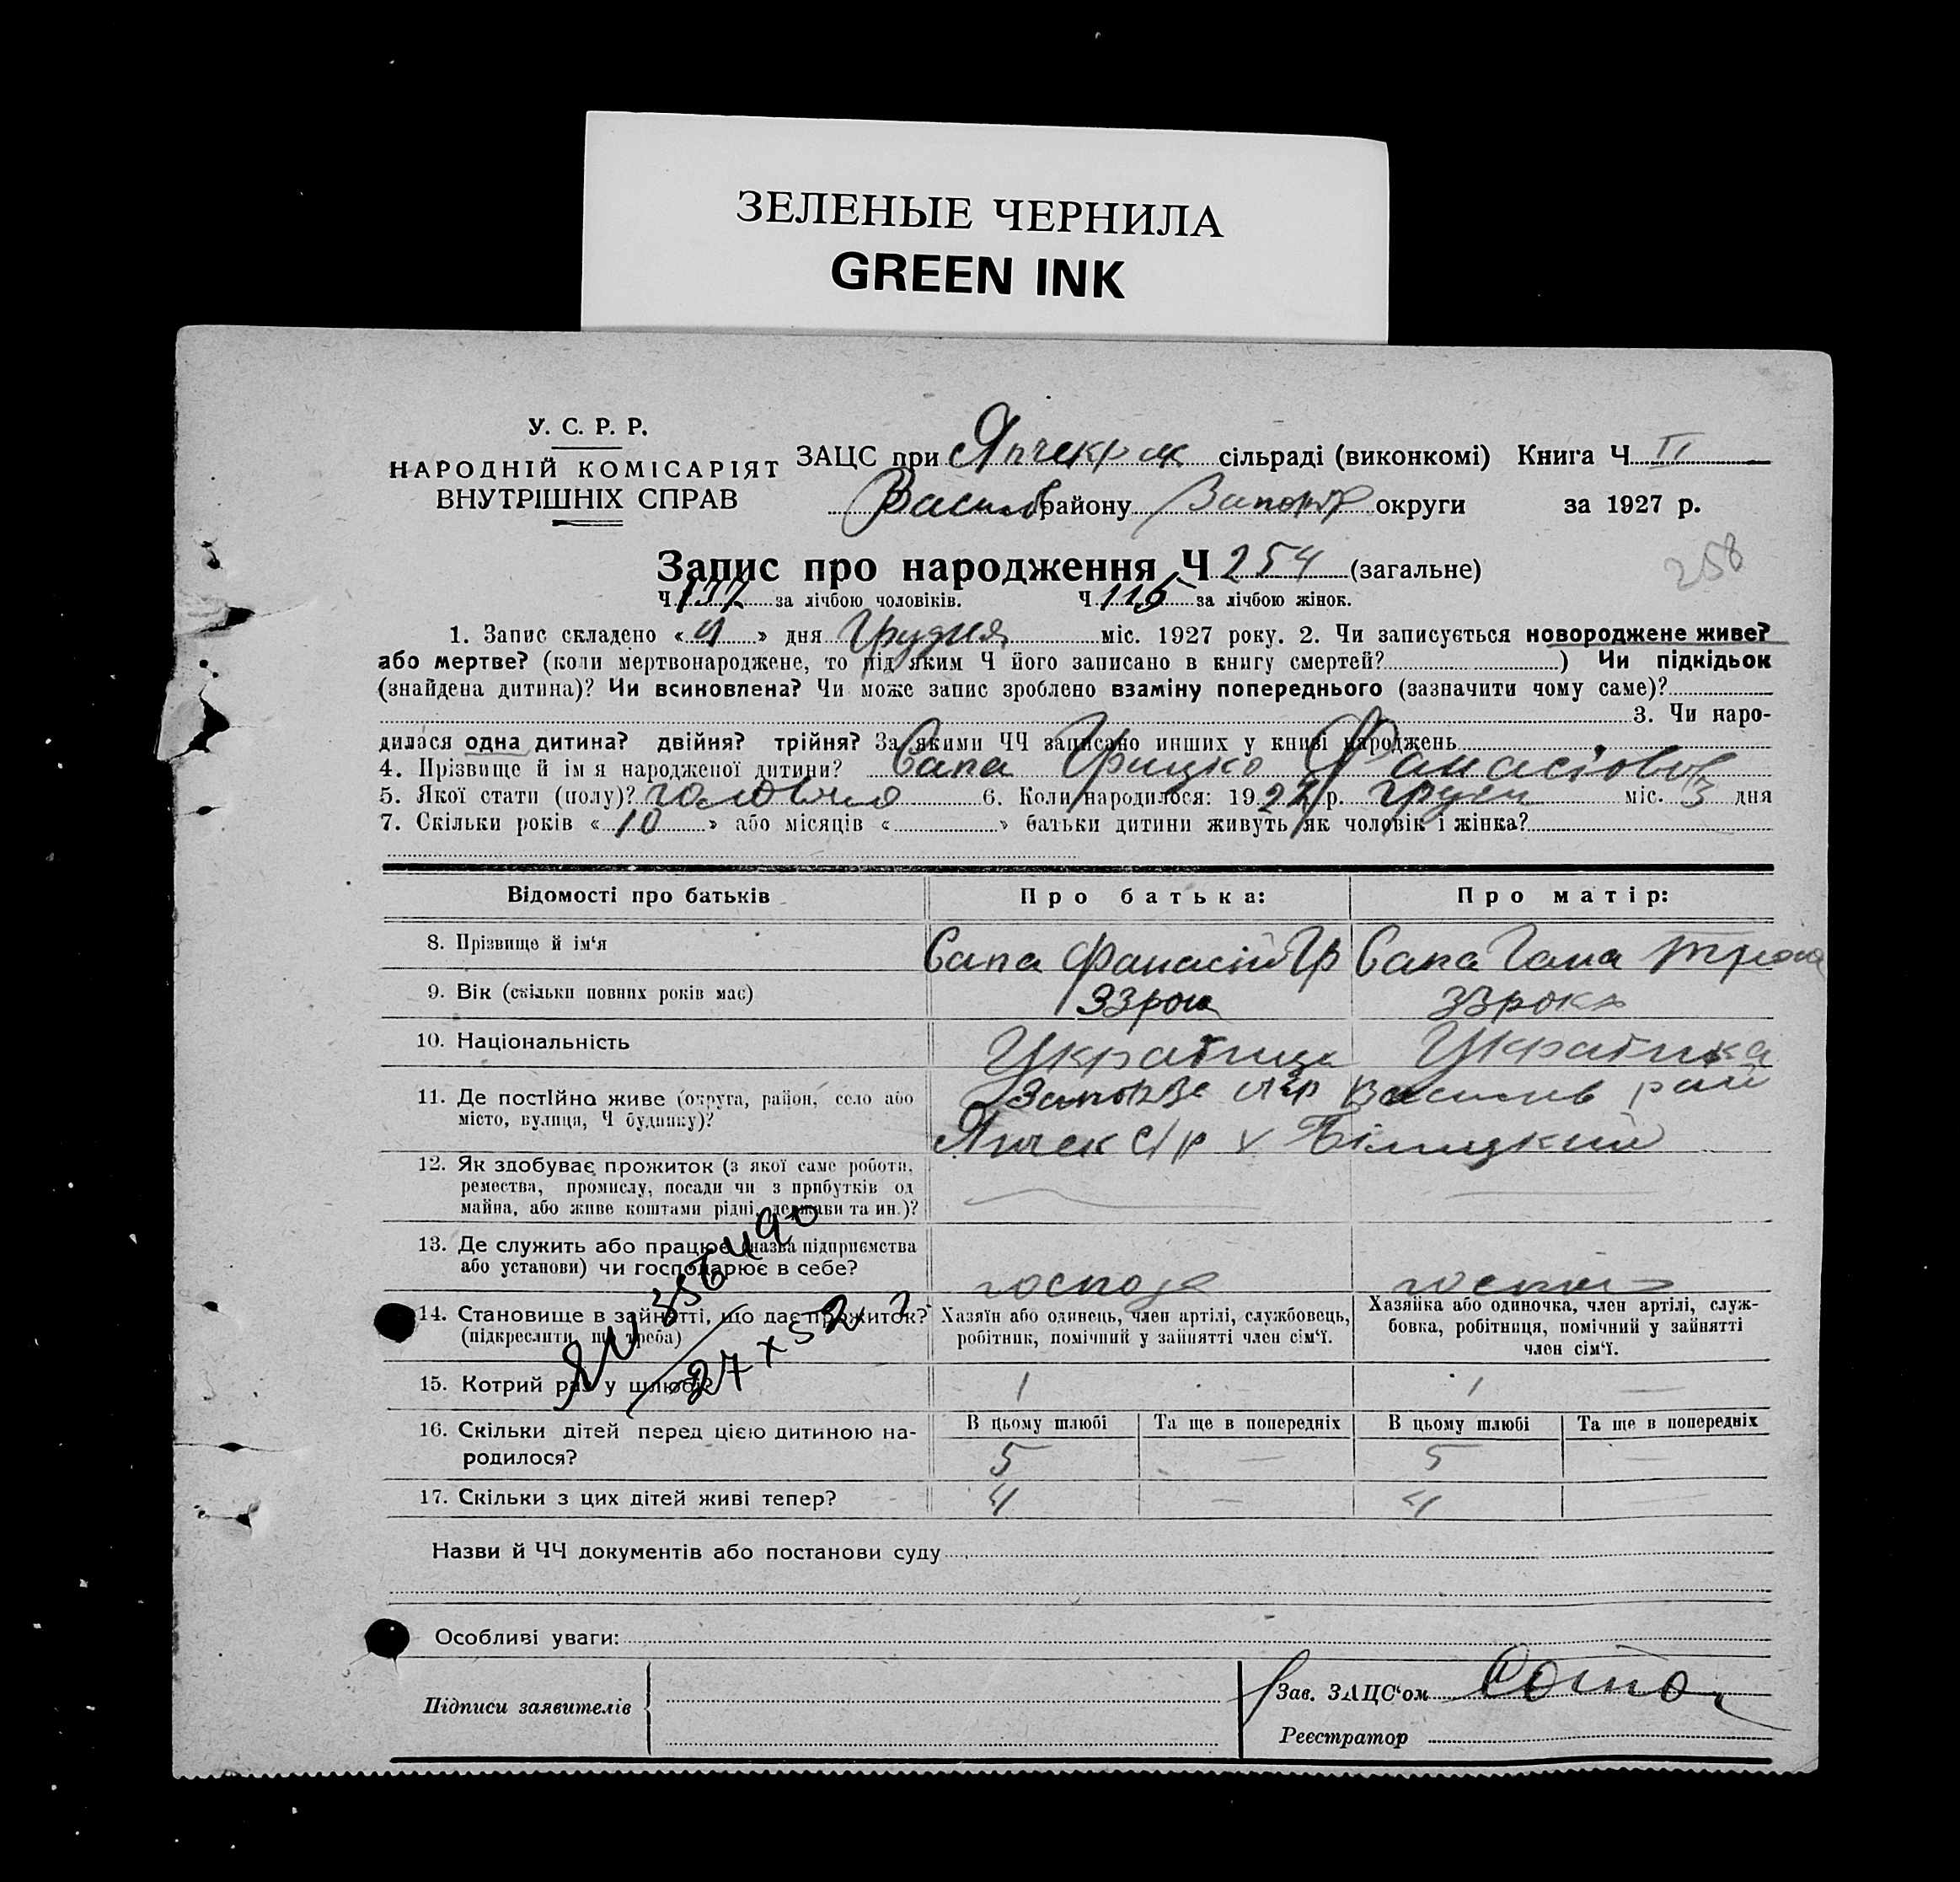 ЗЕЛЕНЫЕ ЧЕРНИЛА
GREEN INK
У. С. Р. Р.
НАРОДНІЙ КОМІСАРІЯТ
ВНУТРІШНІХ СПРАВ
ЗАЦС при сільраді (виконкомі) Книга Ч II
Васил району Запоріз округи за 1927 р.
258
Запис про народження Ч 254 (загальне)
Ч 137 за лічбою чоловіків. Ч 116 за лічбою жінок.
1. Запис складено « 4 » дня Грудня міс. 1927 року. 2. Чи записується новороджене живе?
або мертве? (коли мертвонароджене, то під яким Ч його записано в книгу смертей? ) Чи підкідьок
(знайдена дитина)? Чи всиновлена? Чи може запис зроблено взаміну попереднього (зазначити чому саме)?
3. Чи наро-
дилася одна дитина? двійня? трійня? За якими ЧЧ записано инших у книзі народжень
4. Прізвище й імя народженої дитини? Сапа Грицко Фанасіовов
5. Якої стати (полу)? чоловіча 6. Коли народилося: 1927 р. грудн міс. 3 дня
7. Скільки років « 10 » або місяців « » батьки дитини живуть як чоловік і жінка?
Відомості про батьків Про батька: Про матір:
8. Прізвище й ім‘я Сапа Фанасій Гр Сапа Гана
9. Вік (скільки повних років має) 33 рока 33 рока
10. Національність Україниц Українка
11. Де постійно живе (округа, район, село або Запоріз окр Василів рай
місто, вулиця, Ч будинку)? Япчек с/р х Білицкий
12. Як здобуває прожиток (з якої саме роботи,
ремества, промислу, посади чи з прибутків од
майна, або живе коштами рідні, держави та ин.)?
13. Де служить або працює (назва підприємства
або установи) чи господарює в себе? господ господ
14. Становище в зайнятті, що дає прожиток?
(підкреслити що треба)
Хазяїн або одинець, член артілі, службовець,
робітник, помічний у зайнятті член сім‘ї.
Хазяйка або одиночка, член артілі, служ-
бовка, робітниця, помічний у зайнятті
член сім‘ї.
15. Котрий раз у шлюбі? 1 1 —
16. Скільки дітей перед цією дитиною на-
родилося?
В цьому шлюбі Та ще в попередніх В цьому шлюбі Та ще в попередніх
5 — 5 —
17. Скільки з цих дітей живі тепер? 4 — 4 —
Назви й ЧЧ документів або постанови суду
Особливі уваги:
Підписи заявителів
Зав. ЗАЦС‘ом
Реєстратор